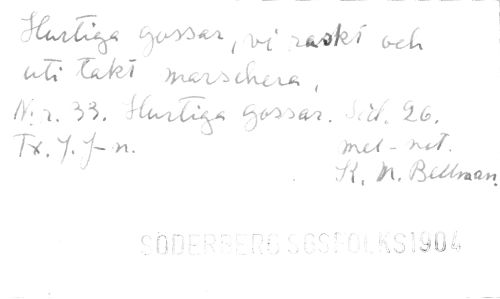 Hurtiga gossar, vi raskt och
uti takt marschera,
N:r. 33. Hurtiga gossar. Sid. 26.
Tx. J. J-n. mel-not.
K. M. Bellman.
SÖDERBERG SGSFOLKS1904